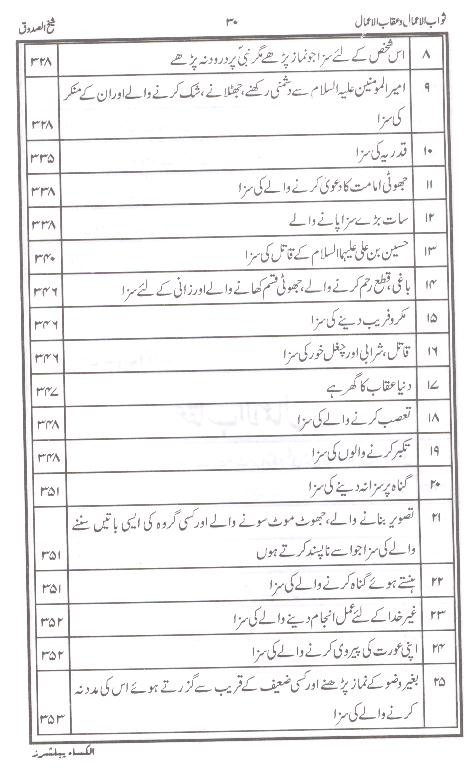 ثواب الاعمال و عقاب الاعمال ۳۰ شیخ الصدوق
۸ اس شخص کے لئے سزا جو نماز پڑھے مگر نبیؐ پر درود نہ پڑھے ۳۲۸
۹ امیر المومنین علیہ السلام سے دشمنی رکھنے، جھٹلانے، شک کرنے والے اور ان کے منکر
کی سزا ۳۲۸
۱۰ قدریہ کی سزا ۳۳۵
۱۱ جھوٹی امامت کا دعویٰ کرنے والے کی سزا ۳۳۸
۱۲ سات بڑے سزا پانے والے ۳۳۸
۱۳ حسین بن علی علیہما السلام کے قاتل کی سزا ۳۴۰
۱۴ باغی، قطع رحم کرنے والے، جھوٹی قسم کھانے والے اور زانی کے لئے سزا ۳۴۶
۱۵ مکر و فریب دینے کی سزا ۳۴۶
۱۶ قاتل، شرابی اور چغل خور کی سزا ۳۴۶
۱۷ دنیا عقاب کا گھر ہے ۳۴۷
۱۸ تعصب کرنے والے کی سزا ۳۴۸
۱۹ تکبر کرنے والوں کی سزا ۳۴۸
۲۰ گناہ پر سزا نہ دینے کی سزا ۳۵۱
۲۱ تصویر بنانے والے، جھوٹ موٹ سونے والے اور کسی گروہ کی ایسی باتیں سننے
والے کی سزا جو اسے ناپسند کرتے ہوں ۳۵۱
۲۲ ہنستے ہوئے گناہ کرنے والے کی سزا ۳۵۱
۲۳ غیر خدا کے لئے عمل انجام دینے والے کی سزا ۳۵۲
۲۴ اپنی عورت کی پیروی کرنے والے کی سزا ۳۵۲
۲۵ بغیر وضو کے نماز پڑھنے اور کسی ضعیف کے قریب سے گزرتے ہوئے اس کی مدد نہ
کرنے والے کی سزا ۳۵۳
الکساء پبلشرز